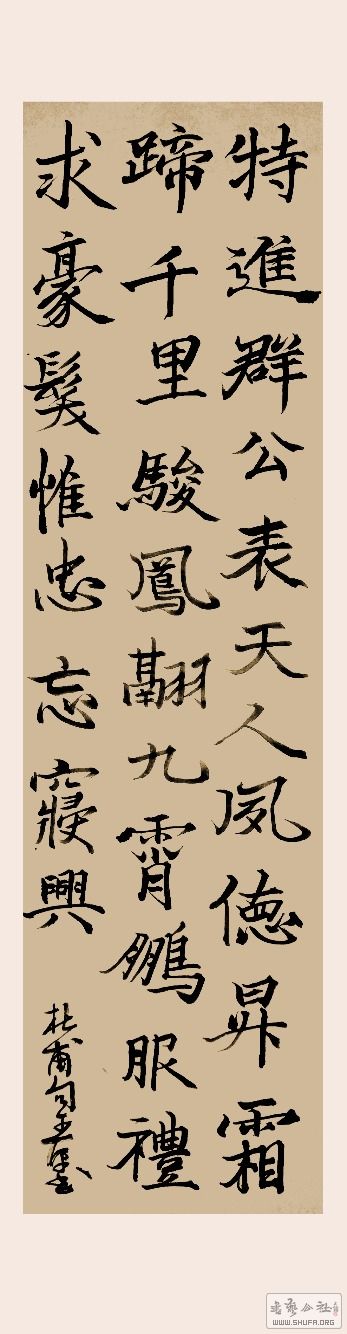 特進群公表天人夙徳昇霜
蹄千里駿鳳翮九霄鵬服禮
求豪髮惟忠忘寢興
杜甫句王
書藝公社
WWW.SHUFA.ORG